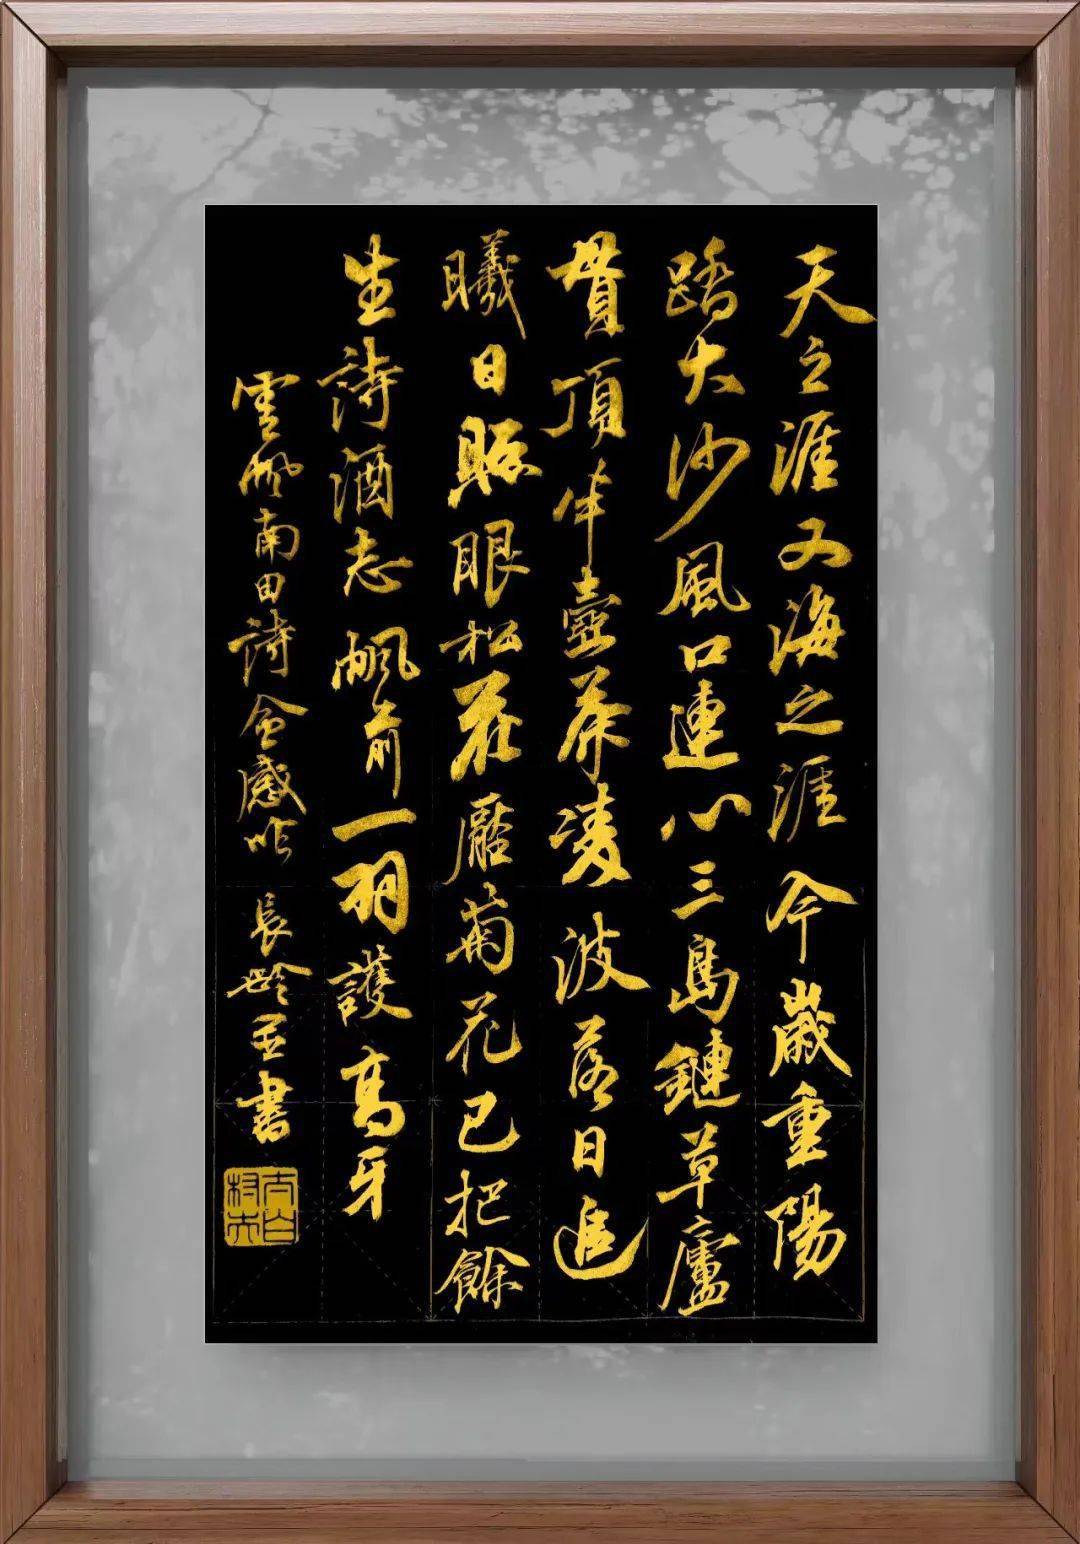 天之涯又海之涯今歲重陽
踏大沙風口連心三島鏈草廬
貫頂半壺茶凌波落日追
曦日照眼松花靨菊花已把餘
生詩酒志帆前一羽護高牙
雲帆南田詩會感吟 長齡並書
太白村夫